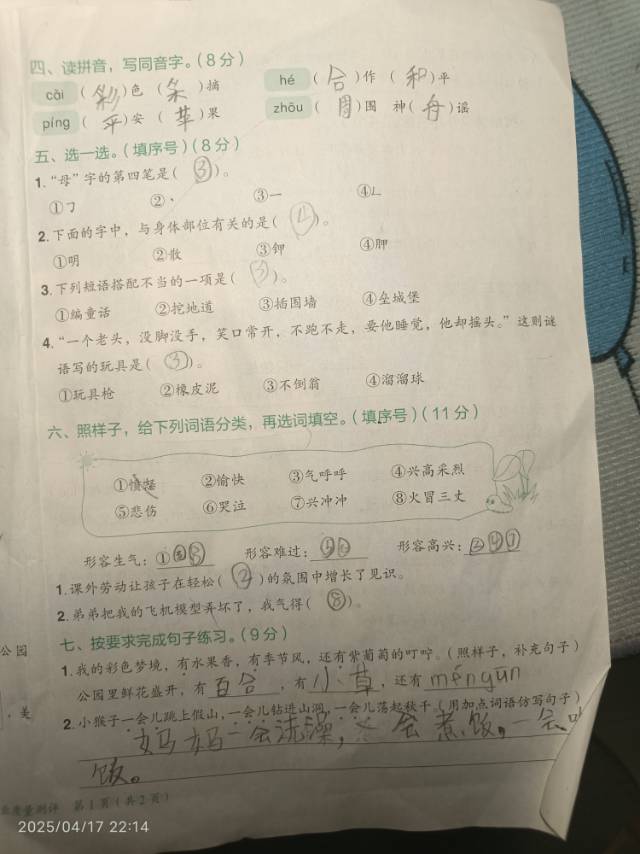 四、读拼音，写同音字。(8分)
cǎi (彩)色 (采)摘 hé (合)作 (和)平
píng (平)安 (苹)果 zhōu (周)围 神(舟)谣
五、选一选。(填序号)(8分)
1.“母”字的第四笔是(③)。
①㇆ ②丶 ③一 ④㇄
2.下面的字中，与身体部位有关的是(④)。
①明 ②散 ③钾 ④胛
3.下列短语搭配不当的一项是(③)。
①编童话 ②挖地道 ③插围墙 ④垒城堡
4.“一个老头，没脚没手，笑口常开，不跑不走，要他睡觉，他却摇头。”这则谜
语写的玩具是(③)。
①玩具枪 ②橡皮泥 ③不倒翁 ④溜溜球
六、照样子，给下列词语分类，再选词填空。(填序号)(11分)
①愤怒 ②愉快 ③气呼呼 ④兴高采烈
⑤悲伤 ⑥哭泣 ⑦兴冲冲 ⑧火冒三丈
形容生气：①③⑧ 形容难过：⑤⑥ 形容高兴：②④⑦
1.课外劳动让孩子在轻松(②)的氛围中增长了见识。
2.弟弟把我的飞机模型弄坏了，我气得(⑧)。
七、按要求完成句子练习。(9分)
1.我的彩色梦境，有水果香，有季节风，还有紫葡萄的叮咛。(照样子，补充句子)
公园
公园里鲜花盛开，有百合，有小草，还有ménɡyūn
，美
2.小猴子一会儿跳上假山，一会儿钻进山洞，一会儿荡起秋千。(用加点词语仿写句子)
妈妈一会洗澡，一会煮饭，一会吃
饭。
质量测评 第1页(共2页)
2025/04/17 22:14